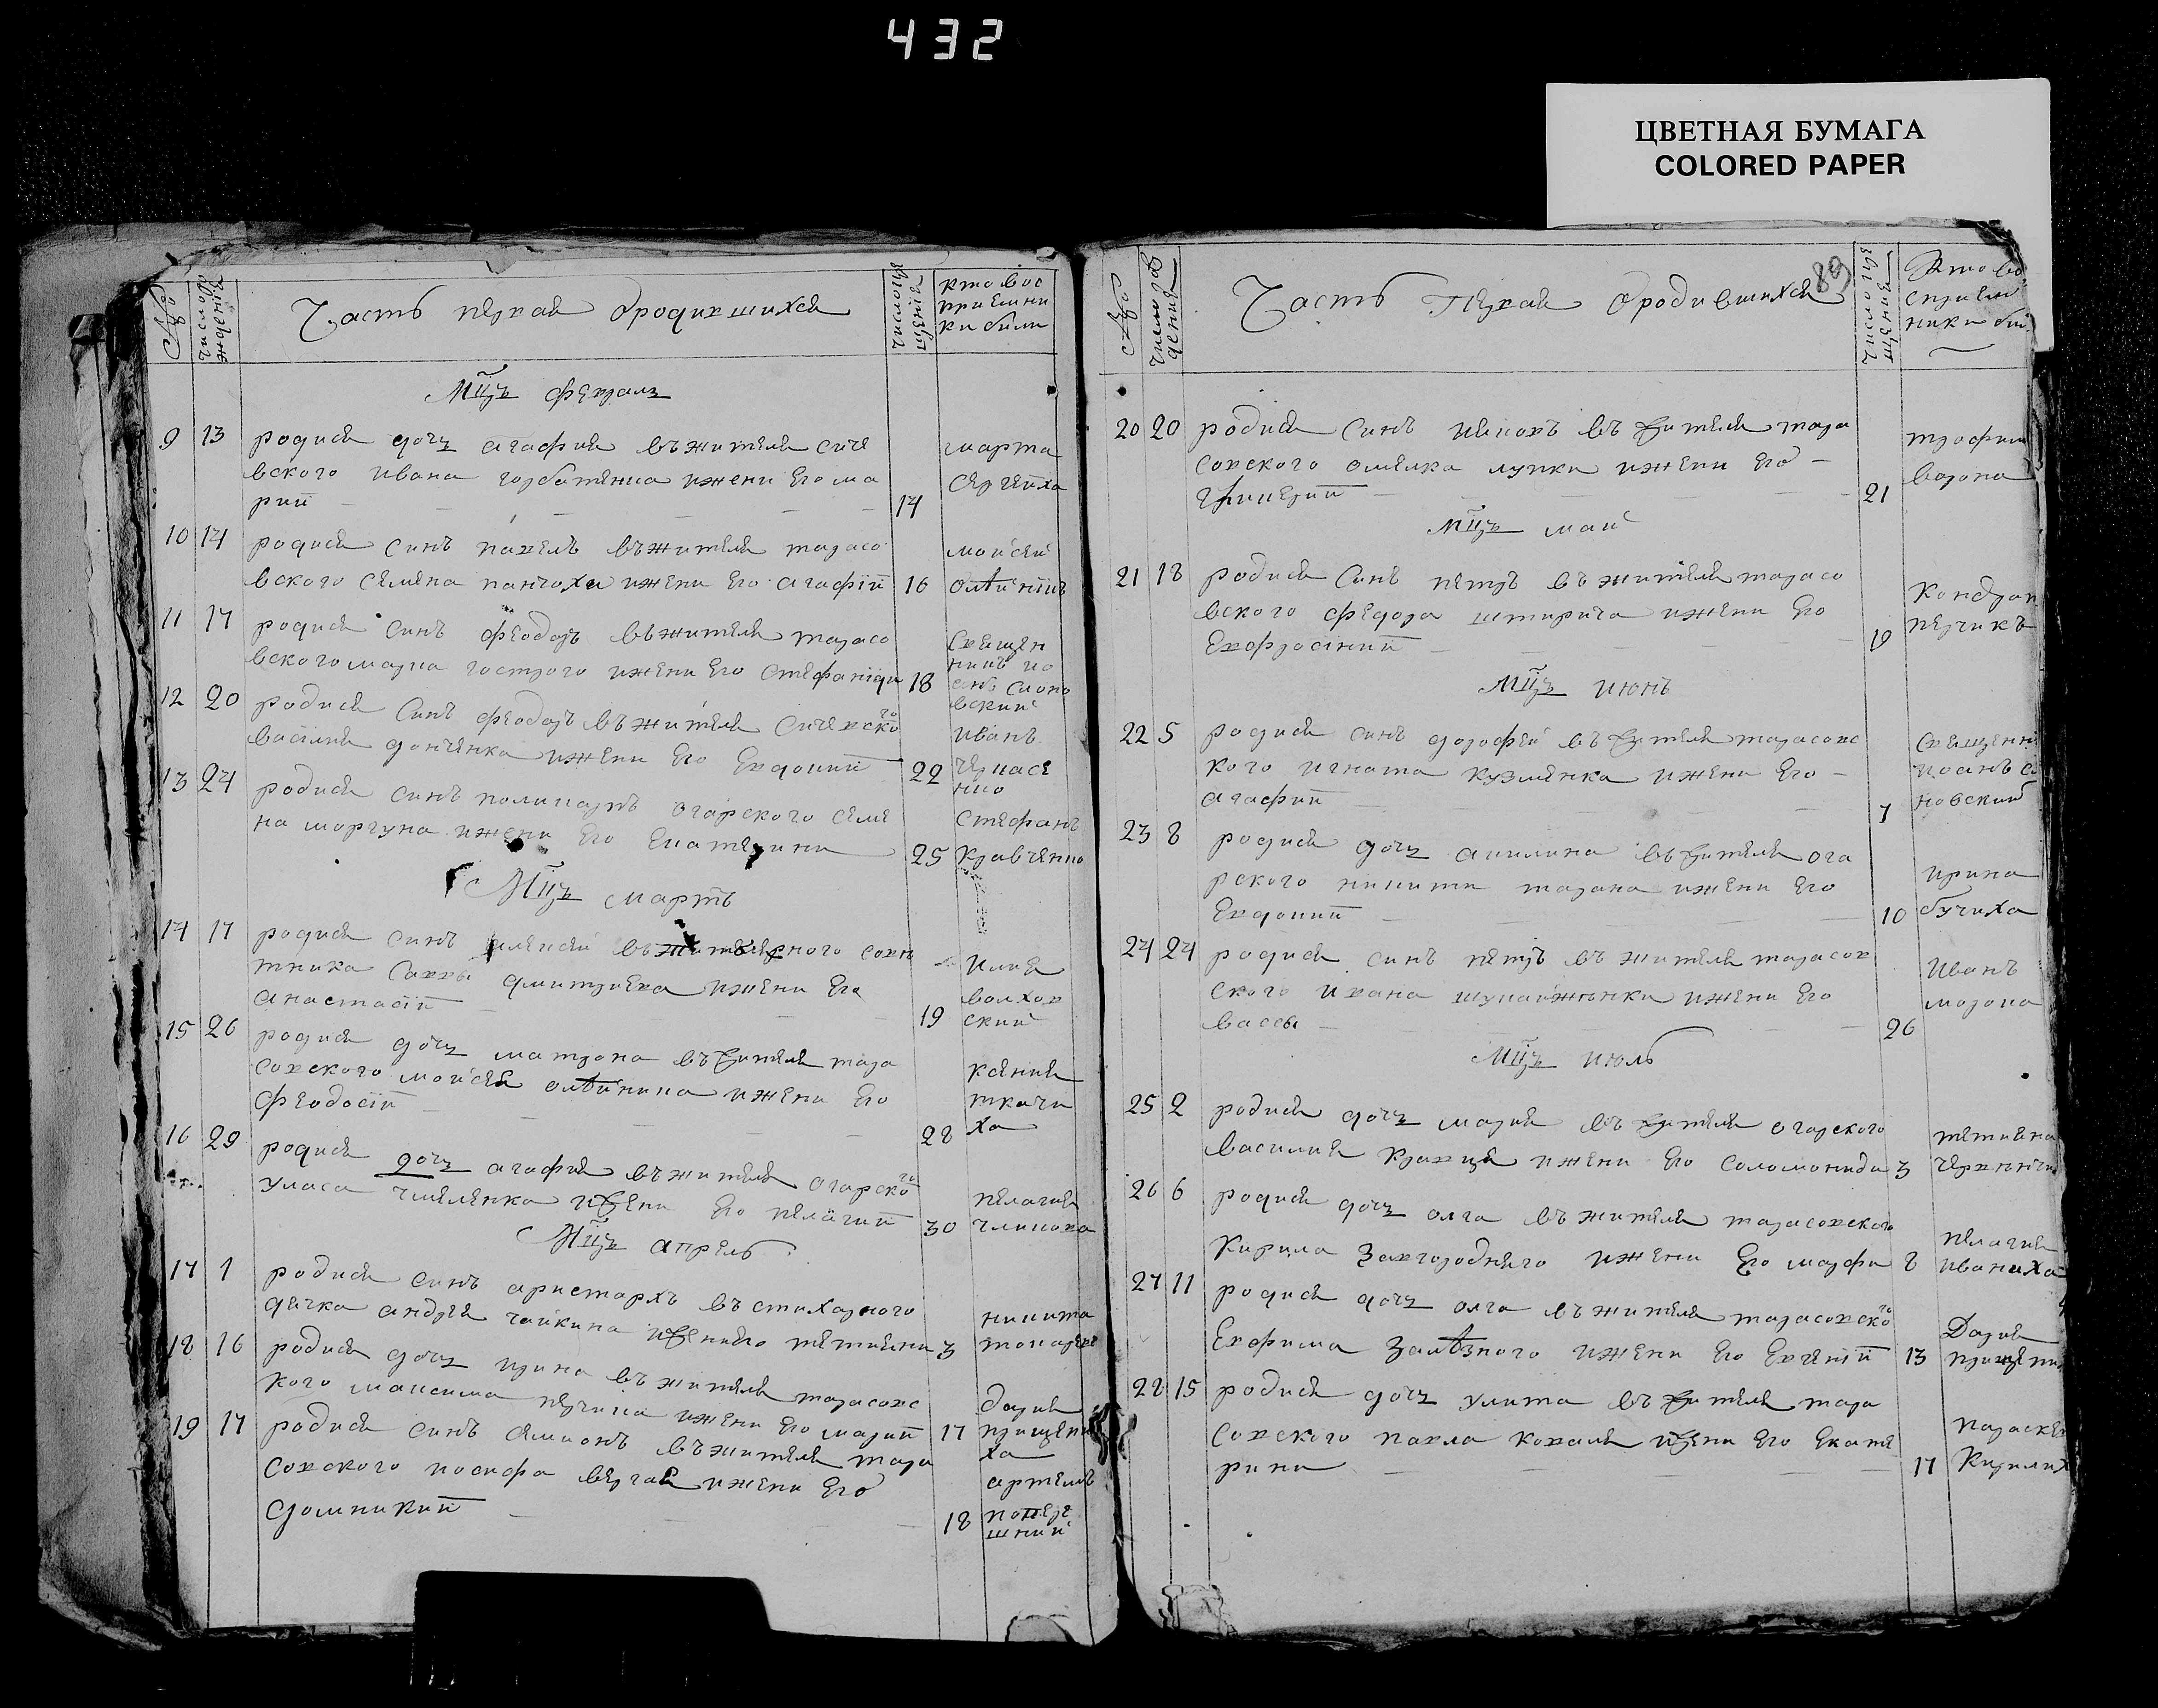 432
ЦВЕТНАЯ БУМАГА
COLORED PAPER
Число рождения
Часть первая о родившихся
Число крещения
кто вос
приемни
ки били
Мцъ февраль
9 13 родися дочь агафия въ жителя сиче
вского ивана горбатенка и жени его ма
рии 14
марта
сергеиха
10 14 родися синъ павелъ въ жителя тарасо
вского семена пантохи и жени его агафіи 16
мойсей
олѣйникъ
11 17 родися синъ феодоръ въ жителя тарасо
вского марка гострого и жени его стефаніди 18
священ
никъ ио
вский
12 20 родися синъ феодоръ въ жителя сичевского
василия донченка и жени его евдокии 22
иванъ
13 24 родися синъ поликарпъ огарского семе
на моргуна и жени его екатерини 25
стефанъ
кравченко
Мцъ мартъ
14 17 родися синъ алексей
тника саввы дмитриева и жени его
анастасіи 19
илия
волхов
ский
15 26 родися дочь матрона въ жителя тара
совского мойсея олѣйника и жени его
феодосіи 28
ксения
ткачи
ха
16 29 родися дочь агафия въ жителя огарского
уласа чмеленка и жени его пелагии 30
пелагия
Мцъ апрель
17 1 родися синъ аристархъ въ стихарного
дячка андрея чайкина и жени его тетияни 3
никита
18 16 родися дочь ирина въ жителя тарасовс
кого максима перчика и жени его марии 17
дария
прищепи
ха
19 17 родися синъ симионъ въ жителя тара
совского иосифа вергая и жени его
домникии 18
артемъ
шний
89
Число рождения
Часть первая о родившихся
Число крещения
Кто во
сприем
ники би
20 20 родися синъ иаковъ въ жителя тара
совского омелка лупки и жени его
гликерии 21
трофим
ворона
Мцъ май
21 18 родися синъ петръ въ жителя тарасо
вского федора штирича и жени его
евфросінии 19
кондрат
перчикъ
Мцъ июнь
22 5 родися синъ дорофей въ жителя тарасовс
кого игната кузменка и жени его
агафии 7
священни
иоанъ со
новский
23 8 родися дочь акилина въ жителя ога
рского никити тарана и жени его
евдокии 10
ирина
бучиха
24 24 родися синъ петръ въ жителя тарасов
ского ивана и жени его
вассы 26
иванъ
Мцъ июль
25 2 родися дочь мария въ жителя огарского
василия кравця и жени его соломониди 3
тетияна
26 6 родися дочь олга въ жителя тарасовского
кирила завгороднего и жени его марфи 8
пелагия
иваниха
27 11 родися дочь олга въ жителя тарасовского
евфима залѣзного и жени его евгеніи 13
Дария
прищепи
28 15 родися дочь улита въ жителя тара
совского павла коваля и жени его екате
рини 17
параскев
кирилих